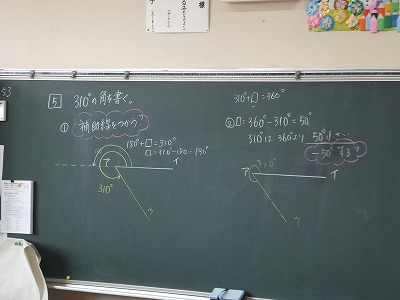 5 310°の角を書く。
① 補助線をつかう？
180°+□=310°
□=310°-180=130°
ア
イ
ウ
310°
310+□=360°
② □=360°-310=50°
310°は 360°より 50°小さい
-50°する？
ア
310°
イ
ウ